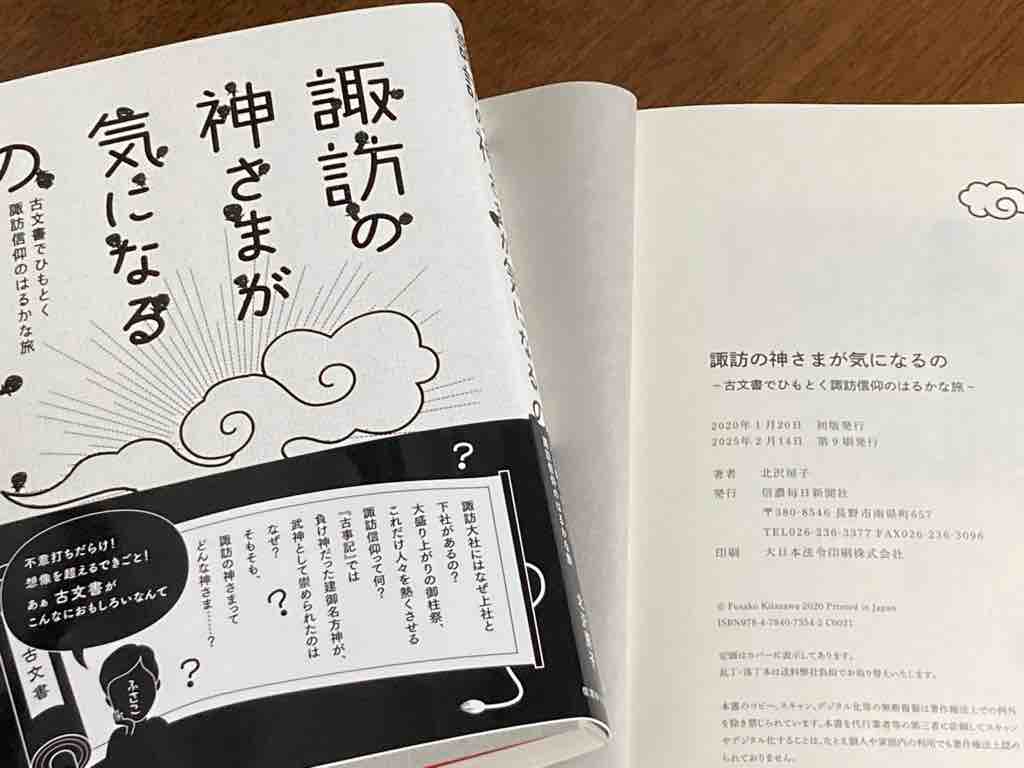 諏訪の
神さまが
気になる
の
古文書でひもとく
諏訪信仰のはるかな旅
諏訪大社にはなぜ上社と
下社があるの?
大盛り上がりの御柱祭、
これだけ人々を熱くさせる
諏訪信仰って何?
『古事記』では
負け神だった建御名方神が、
武神として崇められたのは
なぜ?
そもそも、
諏訪の神さまって
どんな神さま……?
?
?
?
不意打ちだらけ!
想像を超えるできごと!
あぁ 古文書が
こんなにおもしろいなんて
古文書
ふさこ
諏訪の神さまが気になるの
~古文書でひもとく諏訪信仰のはるかな旅~
2020年1月26日 初版発行
2025年2月14日 第9刷発行
著者 北沢房子
発行 信濃毎日新聞社
〒380-8546 長野市南県町657
TEL026-236-3377 FAX026-236-3096
印刷 大日本法令印刷株式会社
© Fusako Kitazawa 2020 Printed in Japan
ISBN978-4-7840-7354-2 C0021
定価はカバーに表示してあります。
乱丁・落丁本は送料弊社負担でお取り替えいたします。
本書のコピー、スキャン、デジタル化等の無断複製は著作権法上での例外
を除き禁じられています。本書を代行業者等の第三者に依頼してスキャン
やデジタル化することは、たとえ個人や家庭内の利用でも著作権法上認め
られておりません。